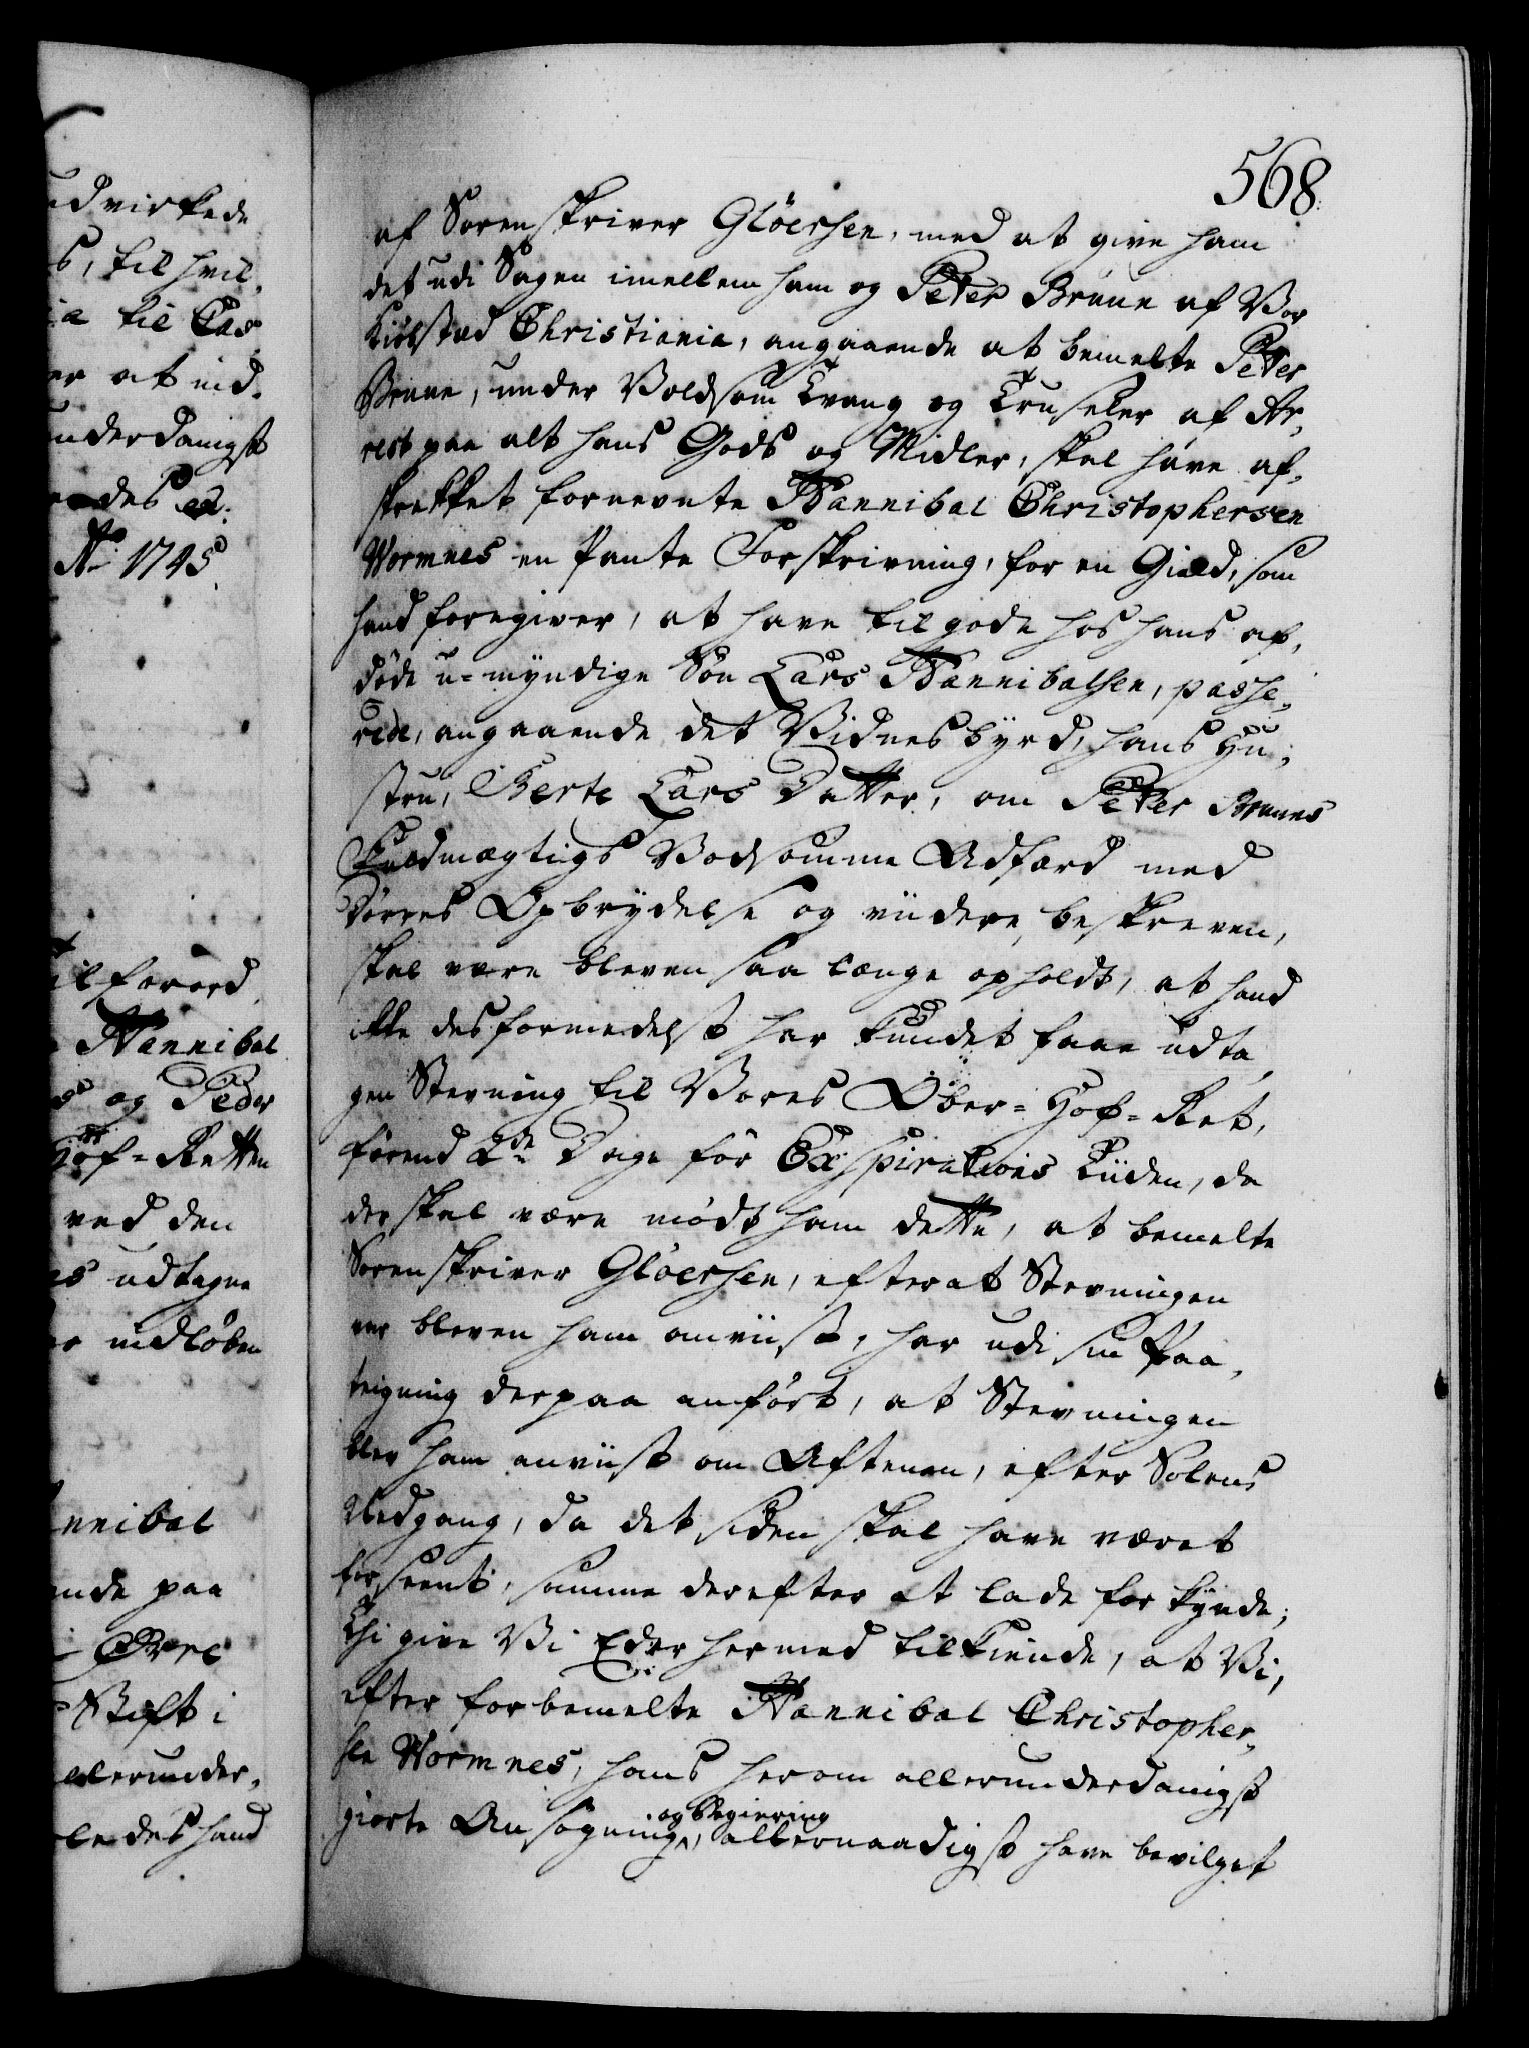 568.
af Sorenskriver Glöersen, med at give ham
det udi Sagen imellem ham og Peter Brüne af Vor
Kiöbstæd Christiania, angaaende at bemelte Peter
Brune, under Voldsom Tvang og Truseler af Ar¬
rest paa alt hans Gods og Midler, skal have af¬
trekket fornevnte Hannibal Christophersen
Wormnes en Pante Forskrivning, for en Giæld, som
hand foregiver, at have til gode hos hans af¬
döde u-myndige Sön Lars Hannibalsen, passe¬
rede, angaaende det Vidnesbyrd, hans Hu¬
stru, Berte Lars Datter, om Peter Brunes
Fuldmægtigs Vodsomme Adfærd med
Dörres Opbrydelse og viidere, beskreven,
skal være bleven saa længe opholdt, at hand
ikke desformedelst har kundet faae udta¬
gen Stevning til Vores Ober-Hof-Ret,
förend 2de Dage för Exspirations Tiiden, da
der skal være mödt ham dette, at bemelte
Sorenskriver Glöersen, efterat Stevningen
var bleven ham anviist, har udi sin Paa¬
teigning derpaa anfört, at Stevningen
blev ham anviist om Aftenen, efter Solens
Nedgang, da det siden skal have været
for seent, samme derefter at lade forkynde;
Thi give Vi Eder hermed tilkiende, at Vi,
efter forbemelte Hannibal Christopher¬
sen Wormnes, hans herom allerunderdanigst
giorte Ansögning og Begiering, allernaadigst have bevilget
udvirkede
s, til hvil¬
ia til Las
er at ind¬
underdanigst
Ao 1745.
Hannibal
og Peder
Hof-Retten
ved den
es udtagne
indlöben
nnibal
nde paa
Stift i
allerunder¬
ledes hand